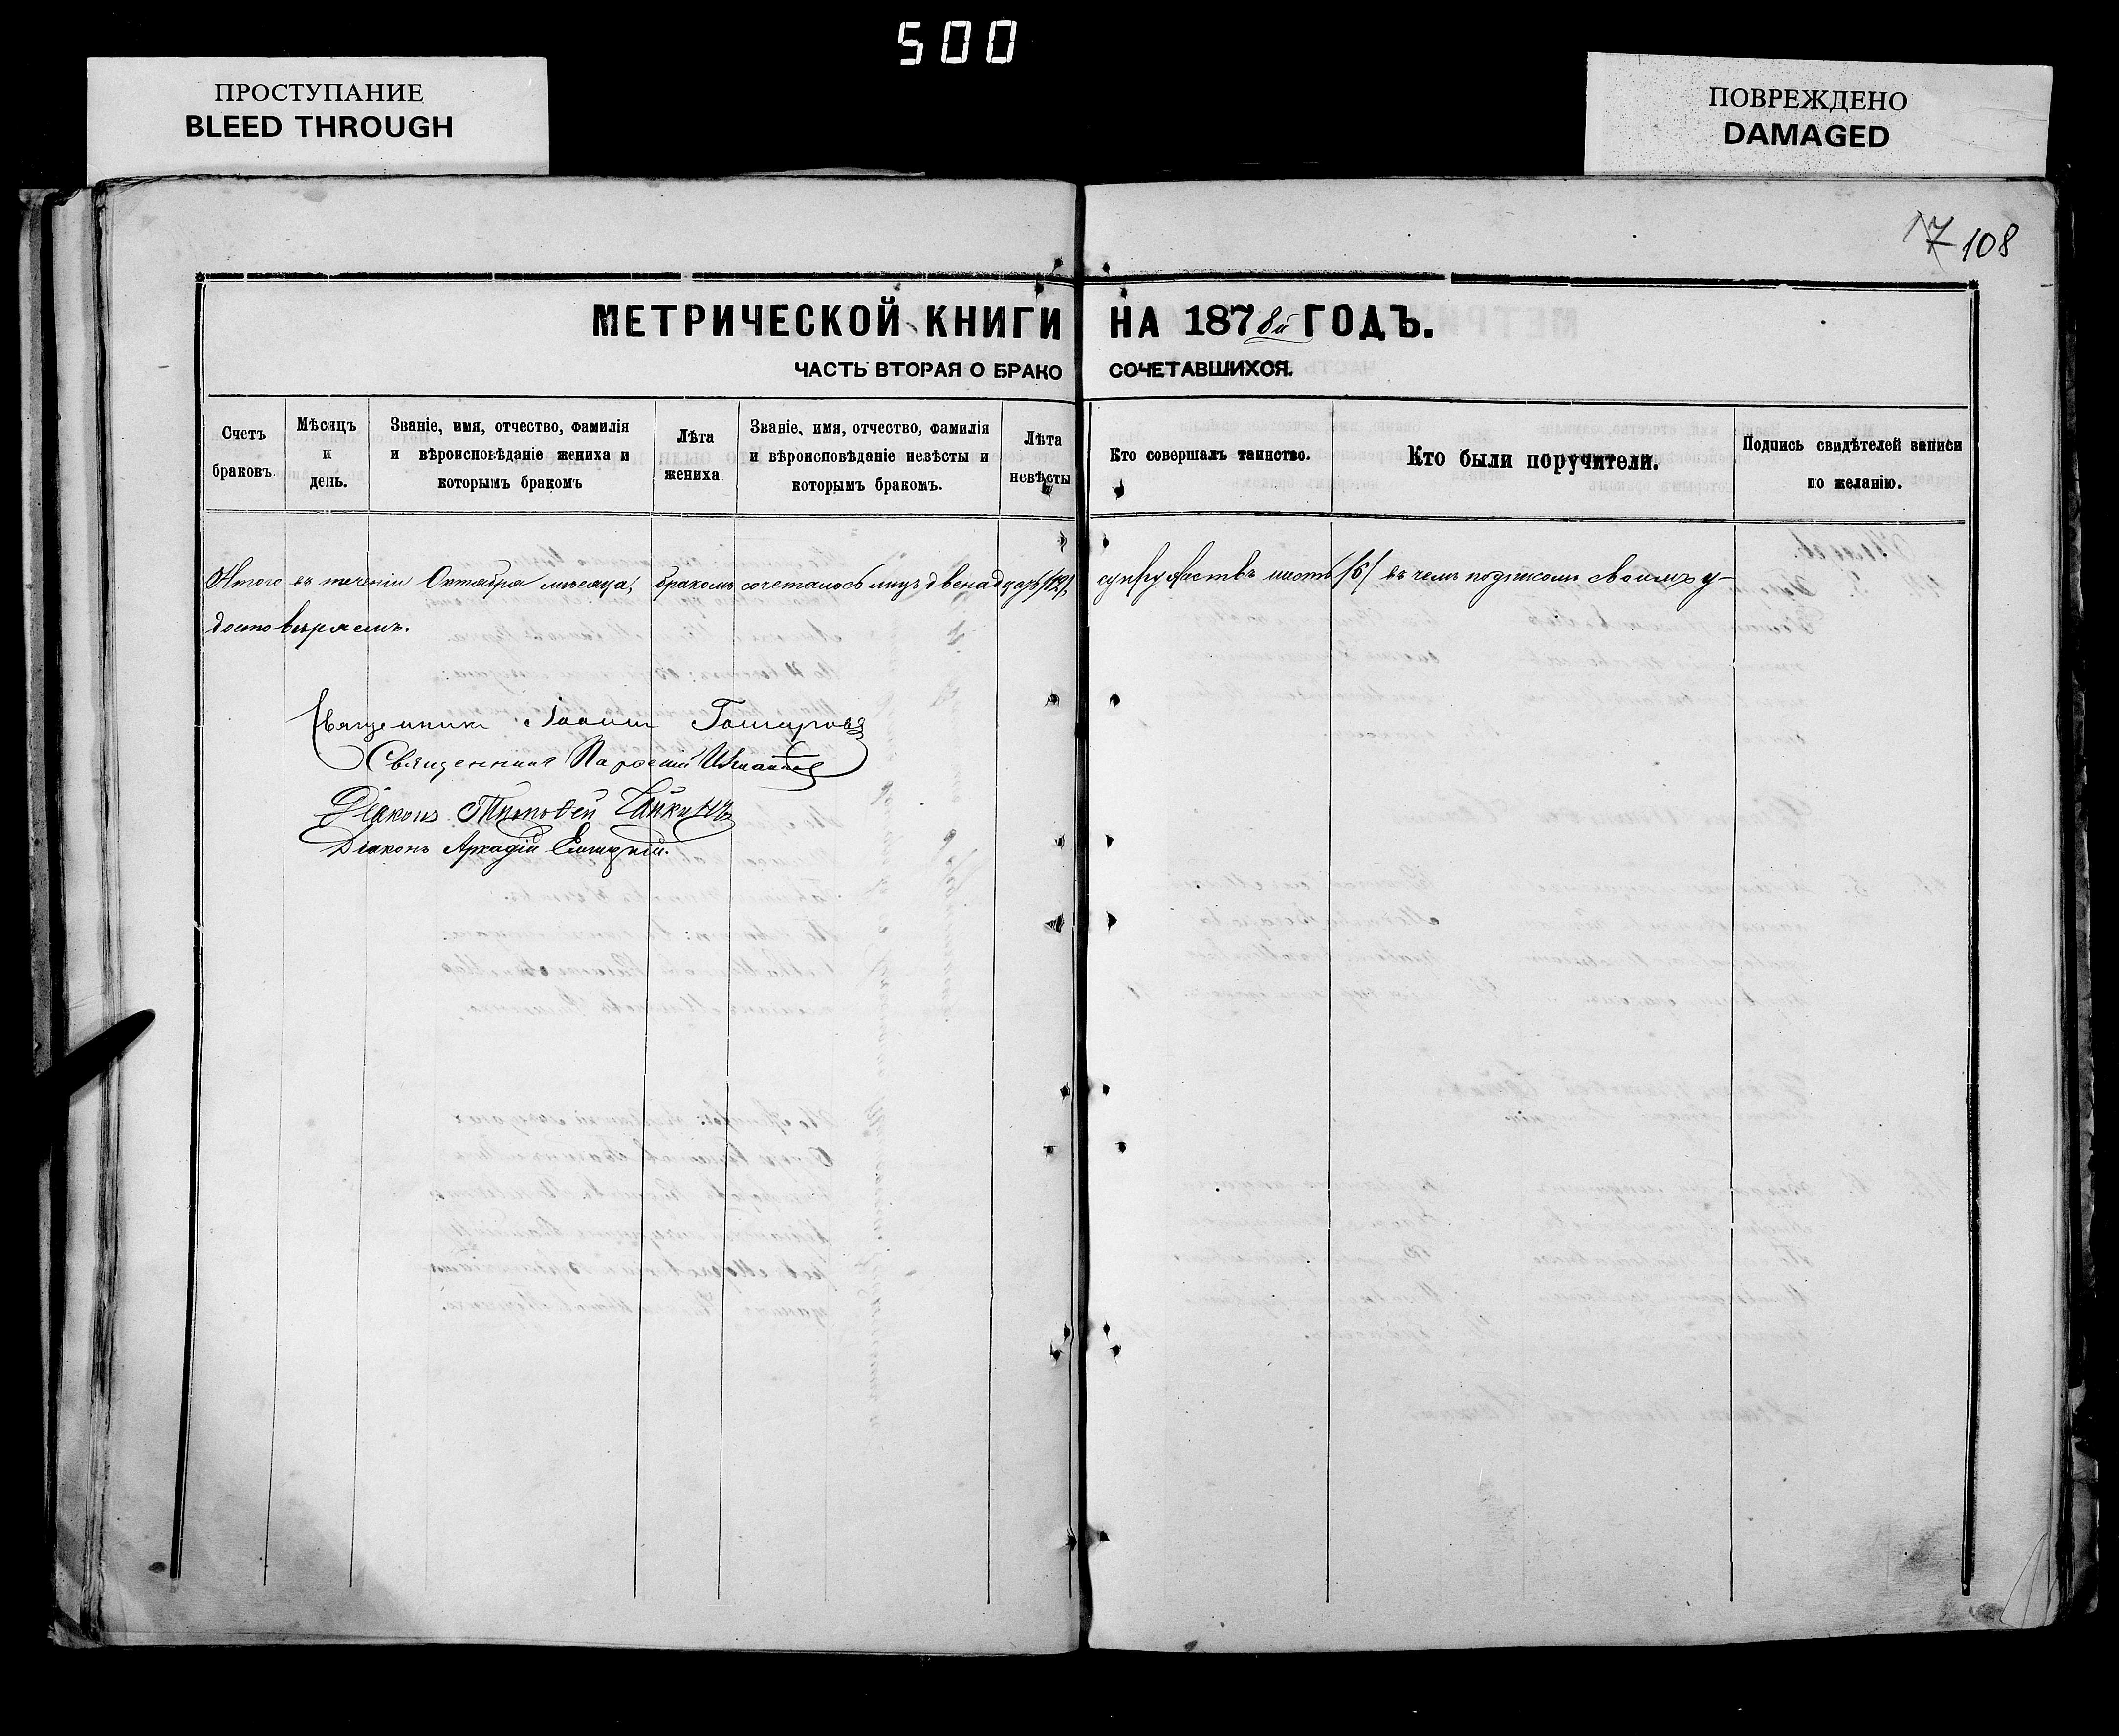 500
ПРОСТУПАНИЕ
BLEED THROUGH
ПОВРЕЖДЕНО
DAMAGED
17 108
МЕТРИЧЕСКОЙ КНИГИ НА 1878й ГОДЪ.
ЧАСТЬ ВТОРАЯ О БРАКОСОЧЕТАВШИХСЯ.
Счетъ браковъ.
Мѣсяцъ и день.
Званіе, имя, отчество, фамилія и вѣроисповѣданіе жениха и которымъ бракомъ
Лѣта жениха
Званіе, имя, отчество, фамилія и вѣроисповѣданіе невѣсты и которымъ бракомъ.
Лѣта невѣсты
Кто совершалъ таинство.
Кто были поручители.
Подпись свидѣтелей записи по желанію.
Итого въ теченіи Октября мѣсяца, бракомъ сочеталось лицъ двенадцать /12/ супружествъ шесть /6/ въ чемъ подписомъ своимъ у-
достовѣряемъ.
Священникъ Іоаннъ
Священникъ
Діаконъ Тимофей
Діаконъ Аркадій